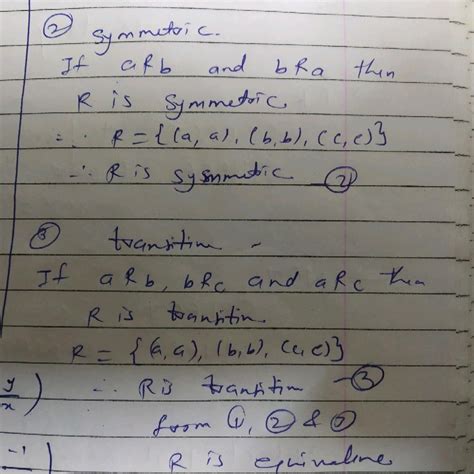 ② Symmetric.
If aRb and bRa then
R is Symmetric
∵ R = {(a, a), (b, b), (c, c)}
∴ R is Symmetric — ②
③ transitiv -
If aRb, bRc and aRc then
R is transitiv.
R = {(a, a), (b, b), (c, c)}
y/x) ∴ R is transitiv — ③
from ①, ② & ③
-1) R is equivalence